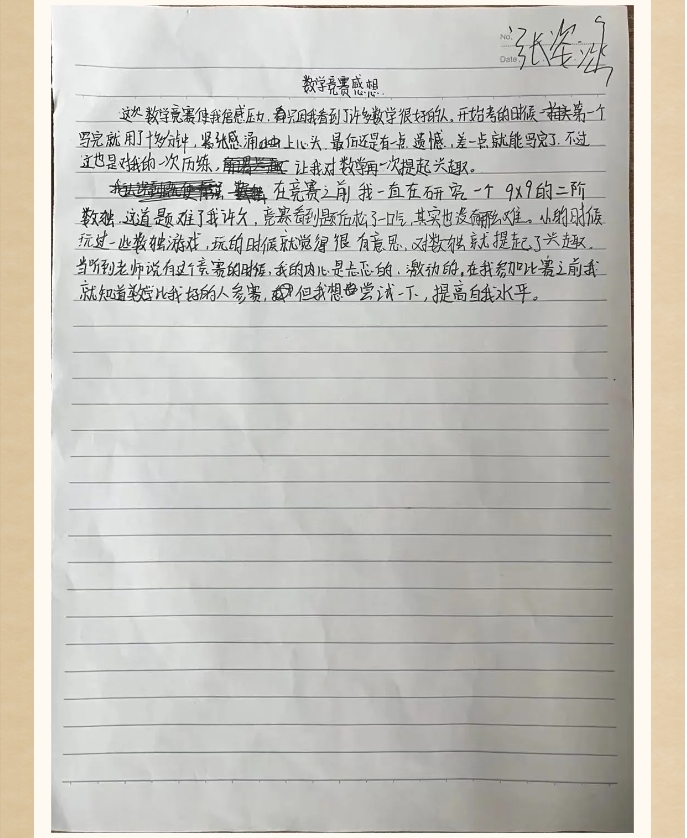 No.
Date
张
数学竞赛感想
这次数学竞赛使我倍感压力,只因我看到了许多数学很好的人,开始考的时候第一个
写完就用了十多分钟,紧张感涌上心头,最后还是有一点遗憾,差一点就能写完了.不过
这也是对我的一次历练,让我对数学再一次提起兴趣。
在竞赛之前我一直在研究一个9×9的二阶
数独,这道题难了我许久,竞赛看到题后松了一口气,其实也没有那么难。小的时候
玩过一些数独游戏,玩的时候就觉得很有意思,对数独就提起了兴趣.
当听到老师说有这个竞赛的时候,我的内心是忐忑的,激动的,在我参加比赛之前我
就知道有比我好的人参赛,但我想尝试一下,提高自我水平。